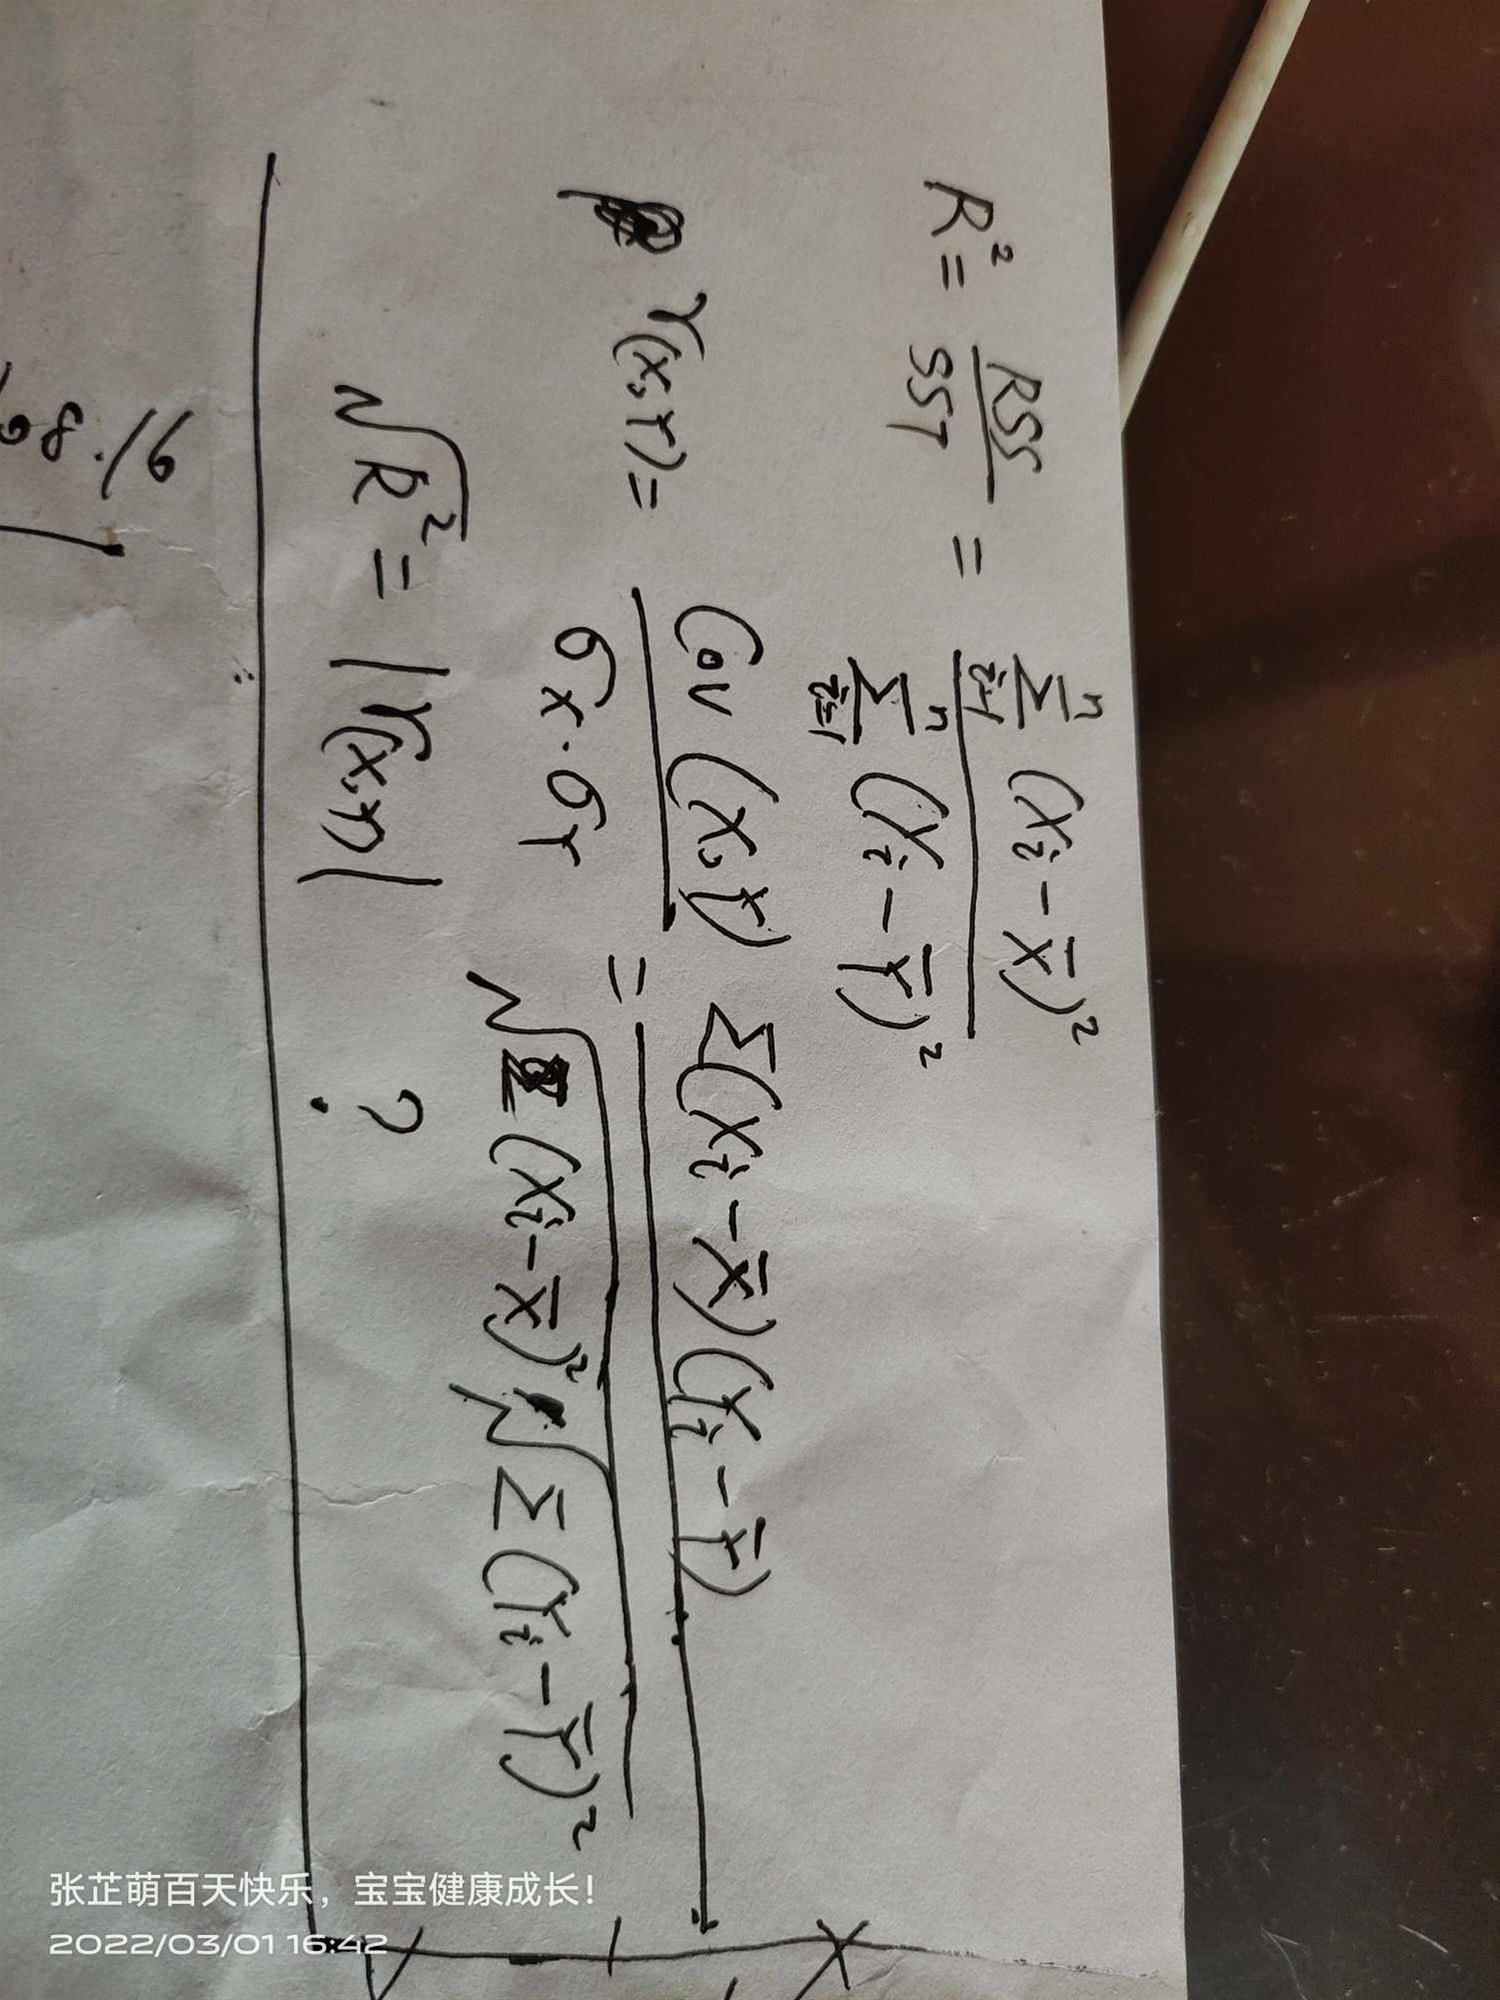 R² = RSS / SST = Σ_{i=1}^{n} (Xi - X̄)² / Σ_{i=1}^{n} (Yi - Ȳ)²
r(X,Y) = Cov (X,Y) / σX · σY = Σ(Xi - X̄)(Yi - Ȳ) / √Σ(Xi - X̄)² √Σ(Yi - Ȳ)²
√R² = |r(X,Y)| ?
张芷萌百天快乐，宝宝健康成长！
2022/03/01 16:42